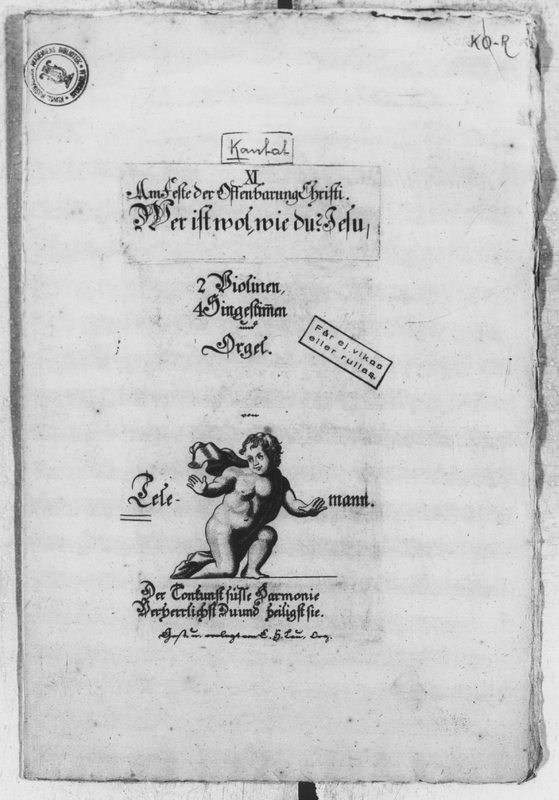 KO-R
Kantat
XI
Am Feste der Offenbarung Christi.
Wer ist wol, wie du? Jesu,
2 Violinen,
4 Singestim̄en
und
Orgel.
Får ej vikas
eller rullas.
von
Tele- mann.
Der Tonkunst süsse Harmonie
Verherrlichst Du und heiligst sie.